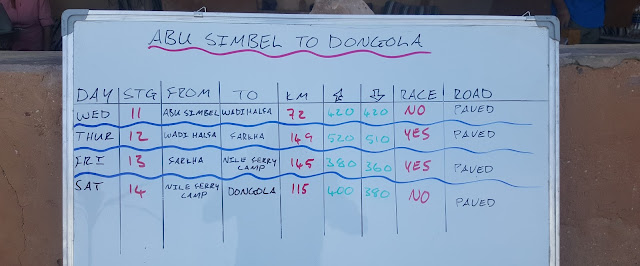 ABU SIMBEL TO DONGOLA
DAY STG FROM TO KM ⇧ ⇩ RACE ROAD
WED 11 ABU SIMBEL WADI HALFA 72 420 420 NO PAVED
THUR 12 WADI HALFA FARKHA 149 520 510 YES PAVED
FRI 13 FARKHA NILE FERRY CAMP 145 380 360 YES PAVED
SAT 14 NILE FERRY CAMP DONGOLA 115 400 380 NO PAVED